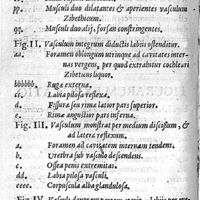 pp. Musculi duo dilatantes & aperientes vasculum
Zibethicum.
qq. Musculi duo alij, forsan constringentes.
Fig. II. Vasculum integrum diductis labijs ostenditur.
aa. Foramen oblongum utrinque ad cavitates inter-
nas vergens, per quod extrahitur cochleari
Zibeticus liquor.
bbbbbb. Ruga externa.
cc. Labia pilosa reflexa.
d. Fissura seu rima latior pars superior.
e. Rimæ angustior pars inferna.
Fig. III. Vasculum monstrat per medium discissum, &
ad latera reflexum.
a. Foramen ad cavitatem internam tendens.
b. Urethra sub vasculo descendens.
c. Ossea penis extremitas.
dd. Labia pilosa vasculi.
eeee. Corpuscula alba glandulosa.
Fig. IV.